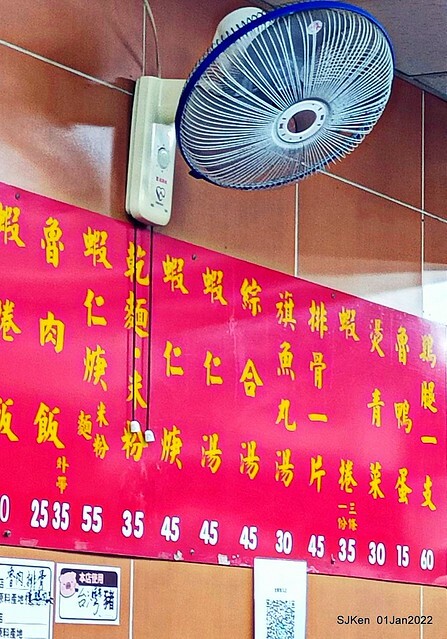 雞腿一支 60
魯鴨蛋 15
燙青菜 30
蝦捲 三條一份 35
排骨一片 45
旗魚丸湯 30
綜合湯 45
蝦仁湯 45
蝦仁焿 45
乾麵·米粉 35
蝦仁焿 米粉 麵 55
魯肉飯 外帶 25 35
蝦捲飯 0
本店使用
台灣豬
原料產地
SJKen 01Jan2022